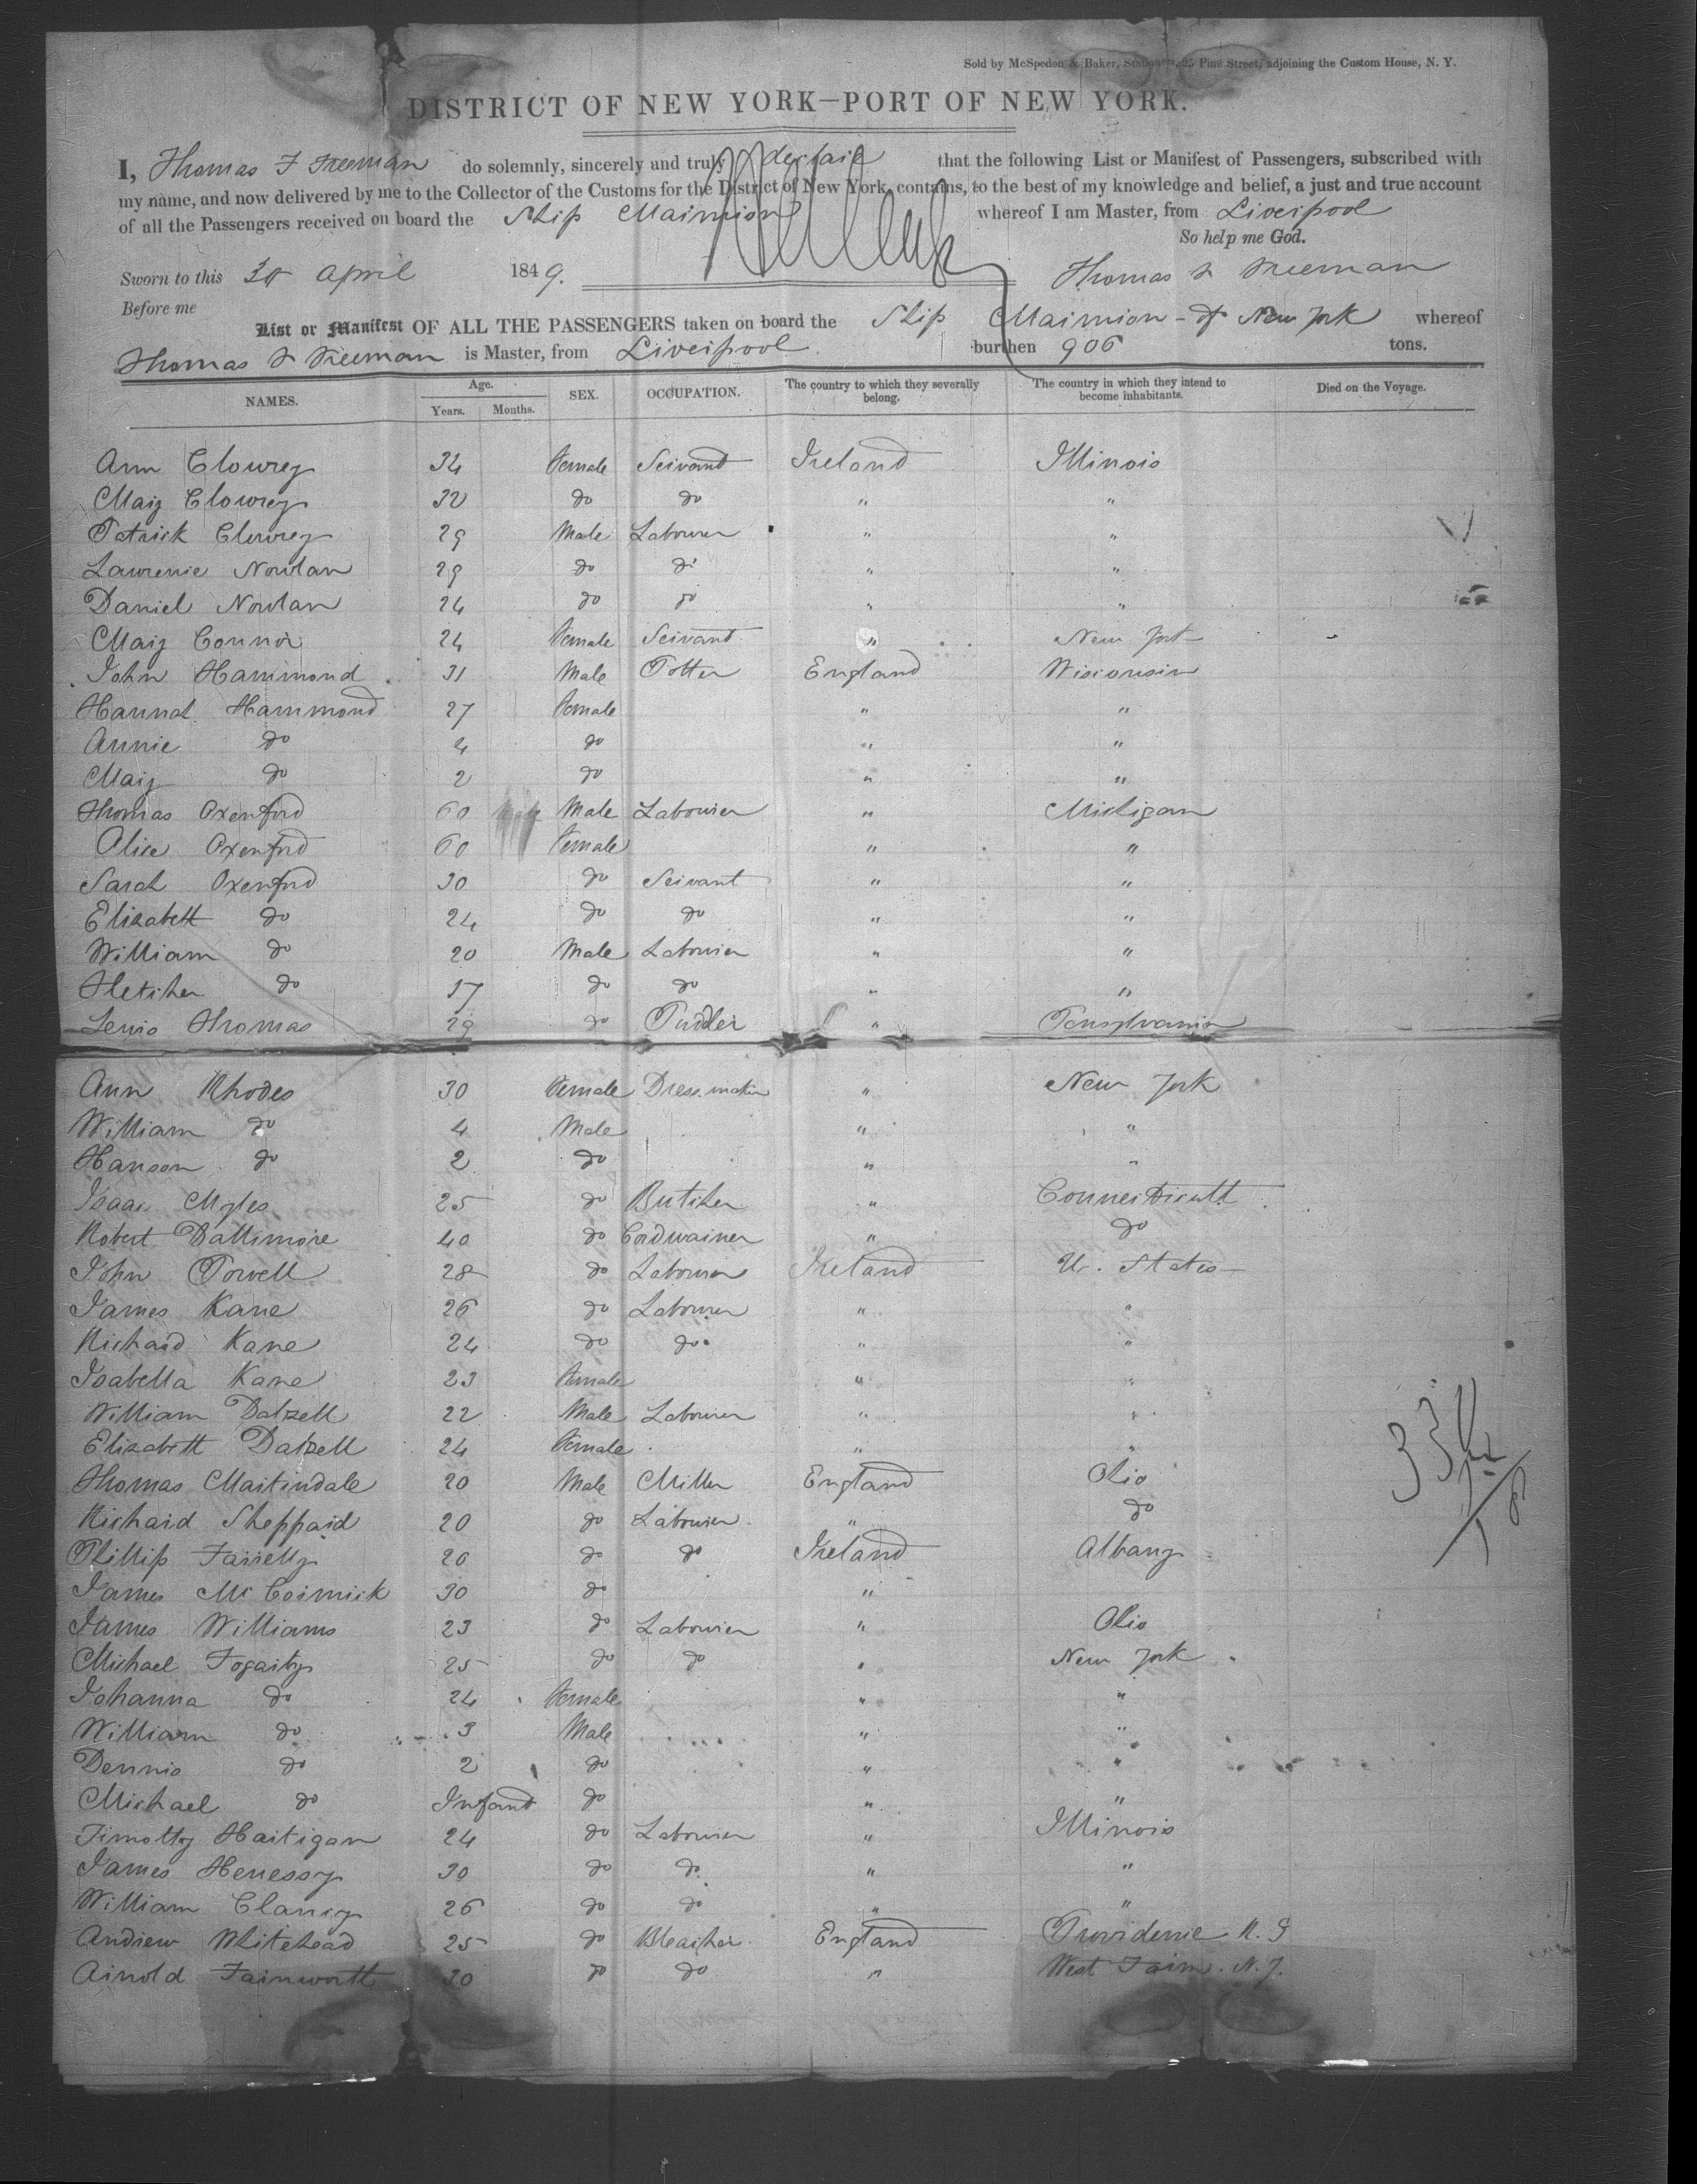 Sold by McSpedon & Baker, Stationers, 25 Pine Street, adjoining the Custom House, N. Y.
DISTRICT OF NEW YORK—PORT OF NEW YORK.
I, Thomas F Freeman do solemnly, sincerely and truly declare that the following List or Manifest of Passengers, subscribed with
my name, and now delivered by me to the Collector of the Customs for the District of New York, contains, to the best of my knowledge and belief, a just and true account
of all the Passengers received on board the Ship Marmion whereof I am Master, from Liverpool
So help me God.
Sworn to this 30 April 1849. Thomas F Freeman
Before me
List or Manifest OF ALL THE PASSENGERS taken on board the Ship Marmion - of New York whereof
Thomas F Freeman is Master, from Liverpool burthen 906 tons.
NAMES. Age. Years. Months. SEX. OCCUPATION. The country to which they severally belong. The country in which they intend to become inhabitants. Died on the Voyage.
Ann Clowrey 34 Female Servant Ireland Illinois
Mary Clowrey 32 do do " "
Patrick Clowrey 29 Male Labourer " "
Lawrence Nowlan 29 do do " "
Daniel Nowlan 24 do do " "
Mary Connor 24 Female Servant " New York
John Hammond 31 Male Potter England Wisconsin
Hannah Hammond 27 Female " "
Annie do 4 do " "
Mary do 2 do " "
Thomas Oxenford 60 Male Labourer " Michigan
Alice Oxenford 60 Female " "
Sarah Oxenford 30 do Servant " "
Elizabeth do 24 do do " "
William do 20 Male Labourer " "
Fletcher do 17 do do " "
Lewis Thomas 29 do Puddler " Pensylvania
Ann Rhodes 30 Female Dress maker " New York
William do 4 Male " "
Hanson do 2 do " "
Isaac Myles 25 do Butcher " Connecticutt
Robert Dattimore 40 do Cordwainer " do
John Powell 28 do Labourer Ireland U. States
James Kane 26 do Labourer " "
Richard Kane 24 do do " "
Isabella Kane 23 Female " "
William Dalzell 22 Male Labourer " "
Elizabeth Dalzell 24 Female " "
Thomas Martindale 20 Male Miller England Ohio
Richard Sheppard 20 do Labourer " do
Phillip Farrelly 20 do do Ireland Albany
James McCormick 30 do "
James Williams 23 do Labourer " Ohio
Michael Fogarty 25 do do " New York
Johanna do 24 Female " "
William do 3 Male " "
Dennis do 2 do " "
Michael do Infant do " "
Timothy Hartigan 24 do Labourer " Illinois
James Henessy 30 do do " "
William Clancy 26 do do " "
Andrew Whitehead 25 do Bleacher England Providence R. I
Arnold Farnworth 30 do do " West Farm. N. J.